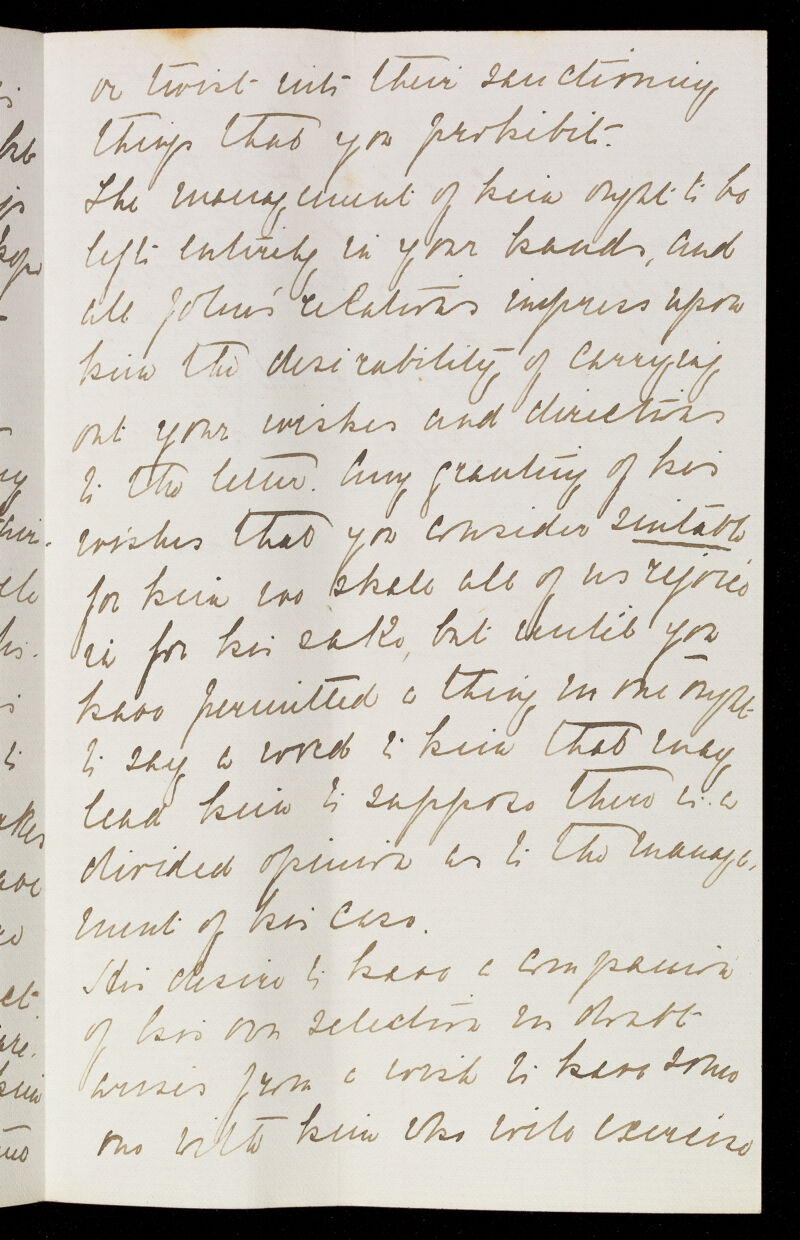 or twist into their sanctioning
things that you prohibit.
The management of him ought to be
left entirely in your hands, and
all John's relations impress upon
him the desirability of carrying
out your wishes and directions
to the letter. Any granting of his
wishes that you consider suitable
for him we shall all of us rejoice
in for his sake, but until you
have permitted a thing no one ought
to say a word to him that may
lead him to suppose there is a
divided opinion as to the manage-
ment of his case.
His desire to have a companion
of his own selection no doubt
arises from a wish to have some
one with him who will exercise